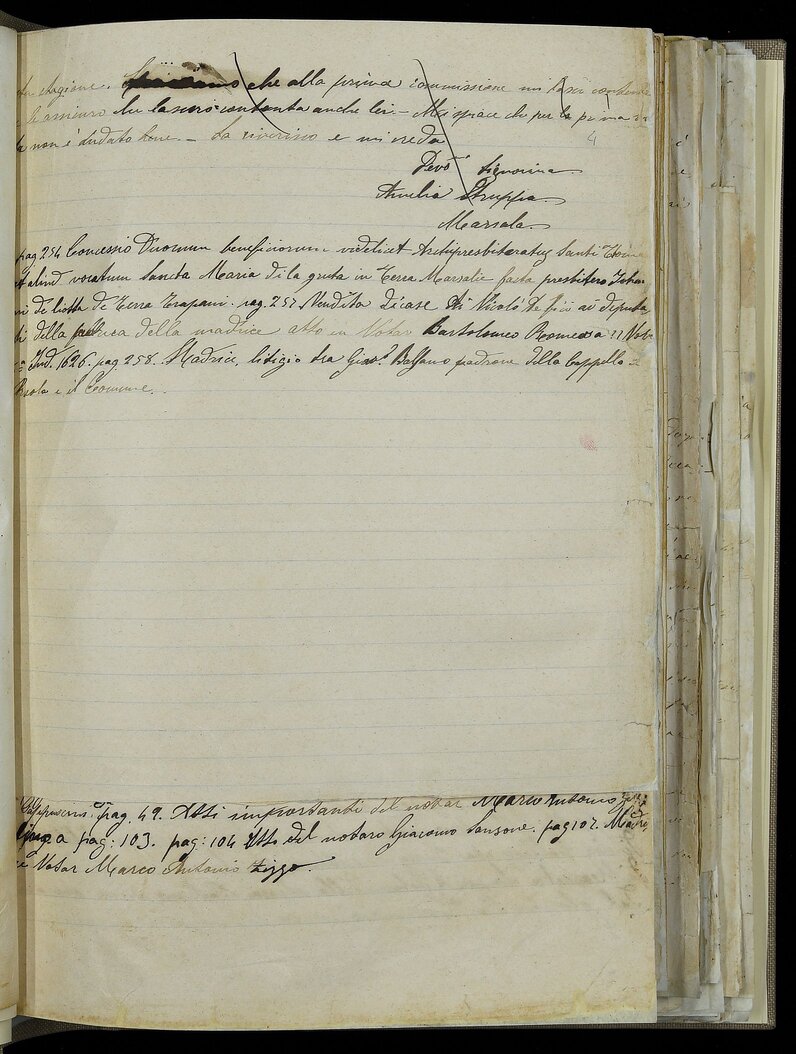 ta stagione. che alla prima commissione mi lasci contenta
e l'assicuro che lascerò contenta anche lei – Mi spiace che per la prima
4
non è andato bene. – La riverisco e mi creda
Devo Signorina
Amelia Struppa
Marsala
pag 254 Concessio Duorum beneficiorum videlicet Archipresbiteratus Santi Thoma
et aliud vocatum Sancta Maria di la gruta in Terra Marsalie facta presbitero Johan
ni de liotta de Terra Trapani. pag. 257 Vendita di case di Nicolò De fici ai deputa
ti della della madrice atto in Notar Bartolomeo Romeo 11 Nov
Ind. 1626. pag. 258. Madrice, litigio tra padrone della Cappella
e il Comune.
pag. 49. Atti importanti del notar Marco Antonio
pag: 103. pag: 104 Atto del notaro Giacomo Sansone. pag 107. Madri
ce Notar Marco Antonio Zizzo.